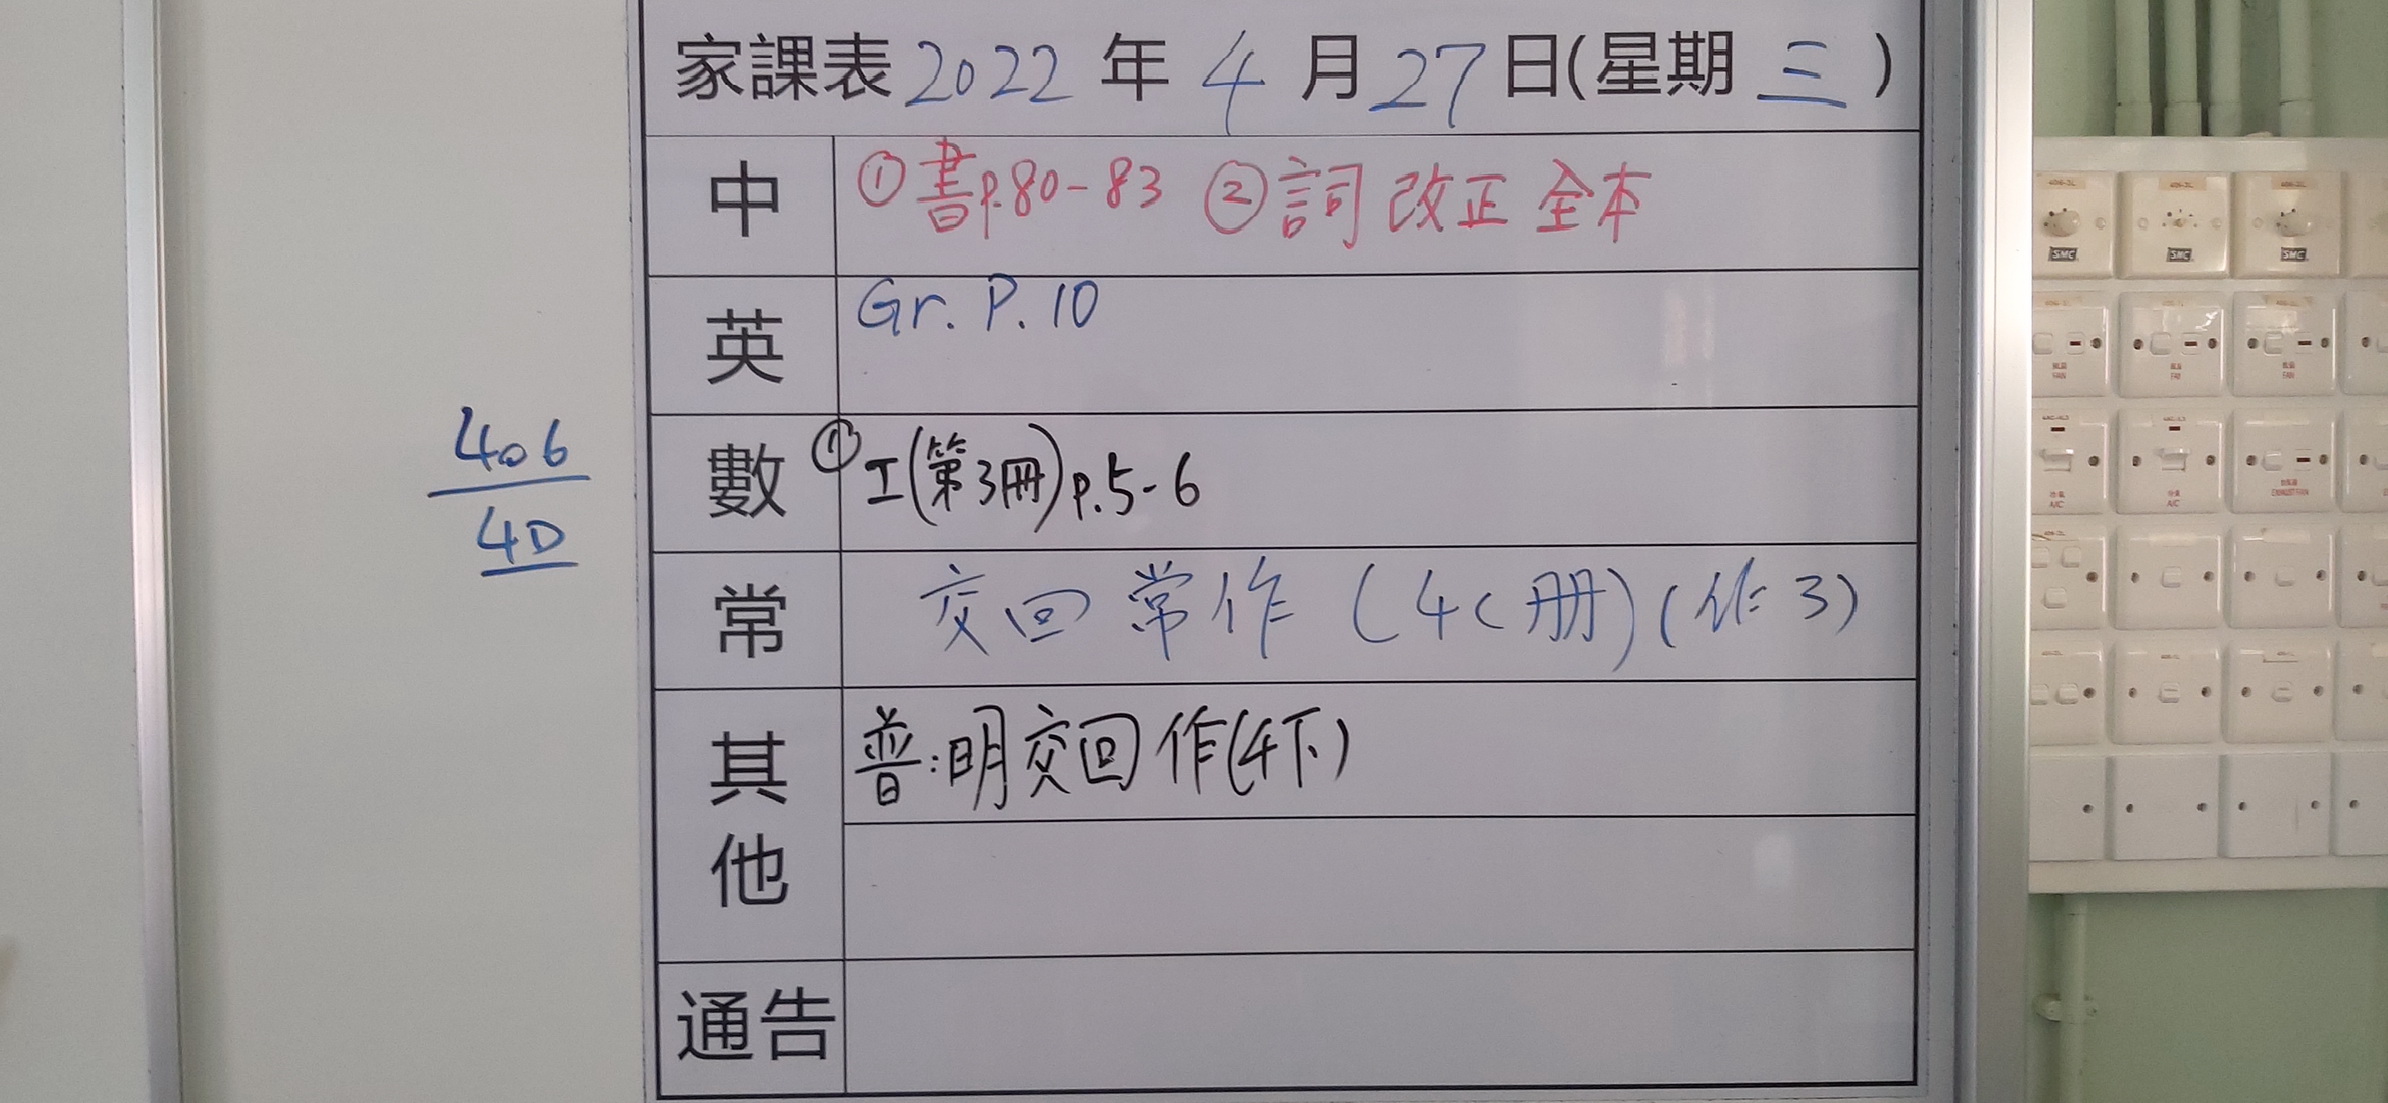 家課表 2022 年 4 月 27 日(星期 三)
中 ①書p.80-83 ②詞 改正 全本
英 Gr. P. 10
數 ①工(第3冊)p.5-6
常 交回常作(4C冊)(作3)
其他 普:明交回作(4下)
通告
406
4D
SMC
SMC
SMC